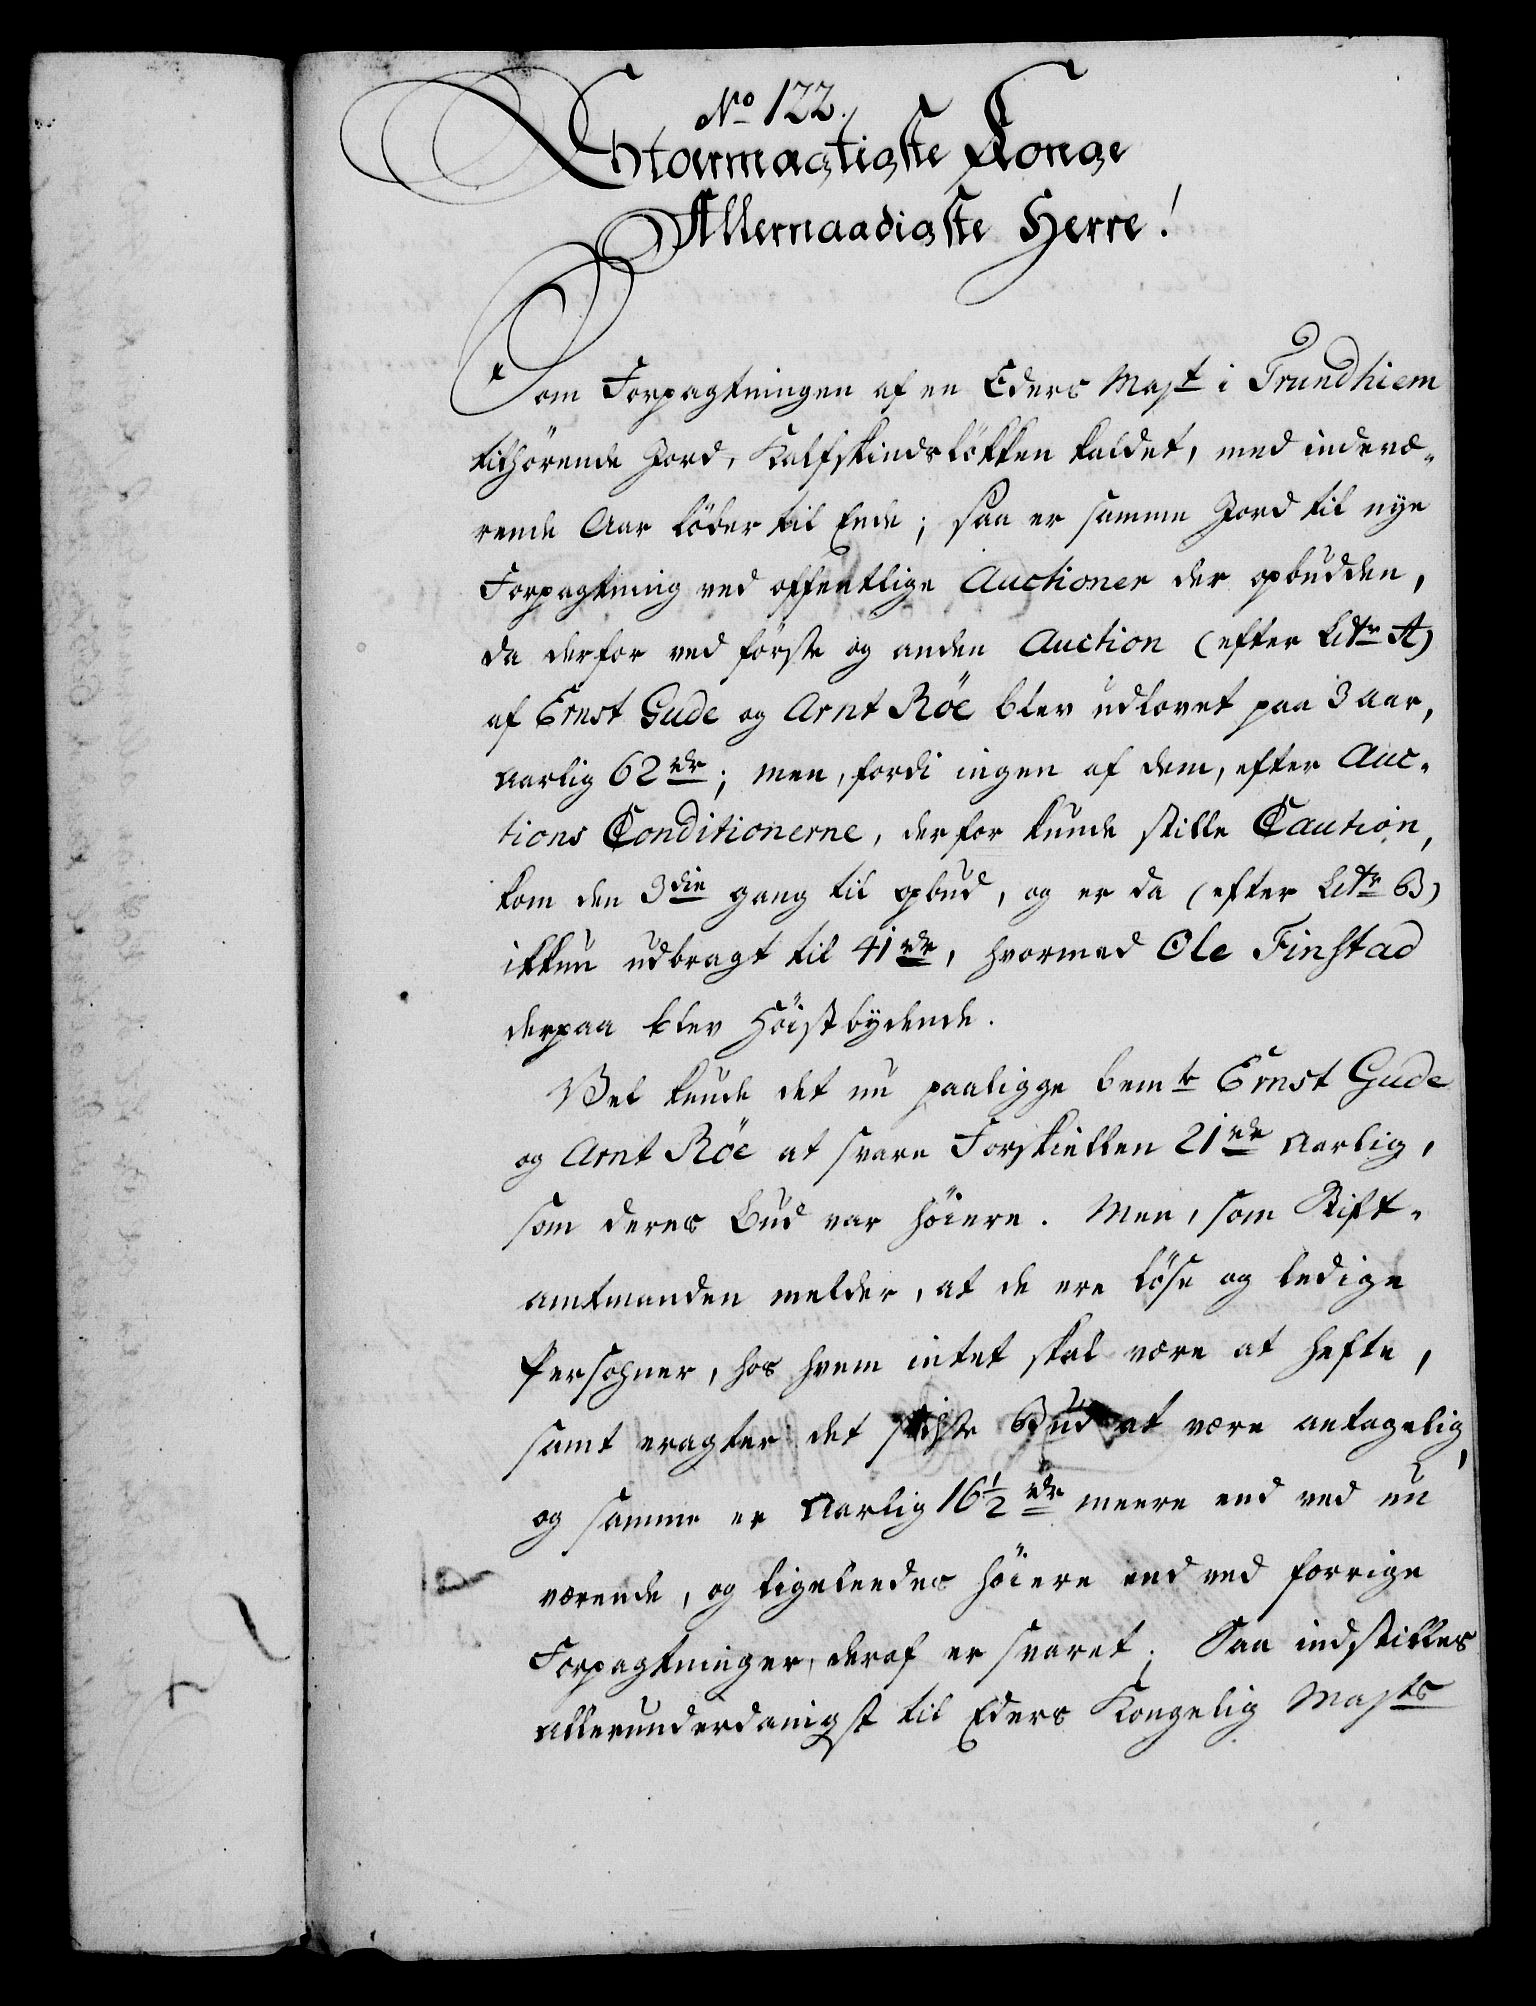 No 122.
Stormægtigste Konge
Allernaadigste Herre!
Som Forpagtningen af en Eders Majt i Trundhiem
tilhörende Jord, Kalfskindslökken kaldet, med indevæ-
rende Aar löber til Ende; saa er samme Jord til nye
Forpagtning ved offentlige Auctioner der opbudden,
da derfor ved förste og anden Auction (efter Litr A)
af Ernst Gude og Arnt Röe blev udlovet paa 3 aar,
aarlig 62 rdr; men, fordi ingen af dem, efter Auc-
tions Conditionerne, derfor kunde stille Caution,
kom den 3die gang til opbud, og er da (efter Litr B)
ikkun udbragt til 41 rdr, hvormed Ole Finstad
derpaa blev höistbydende.
Vel kunde det nu paaligge bemte Ernst Gude
og Arnt Röe at svare Forskiellen 21 rdr aarlig,
som deres Bud var höiere. Men, som Stift-
amtmanden melder, at de ere löse og ledige
Persohner, hos hvem intet skal være at hefte,
samt eragter det sidste Bud at være antagelig,
og samme er aarlig 16½ rdr meere end ved nu
værende, og ligeleedes höiere end ved forrige
Forpagtninger, deraf er svaret; Saa indstilles
allerunderdanigst til Eders Kongelig Majts